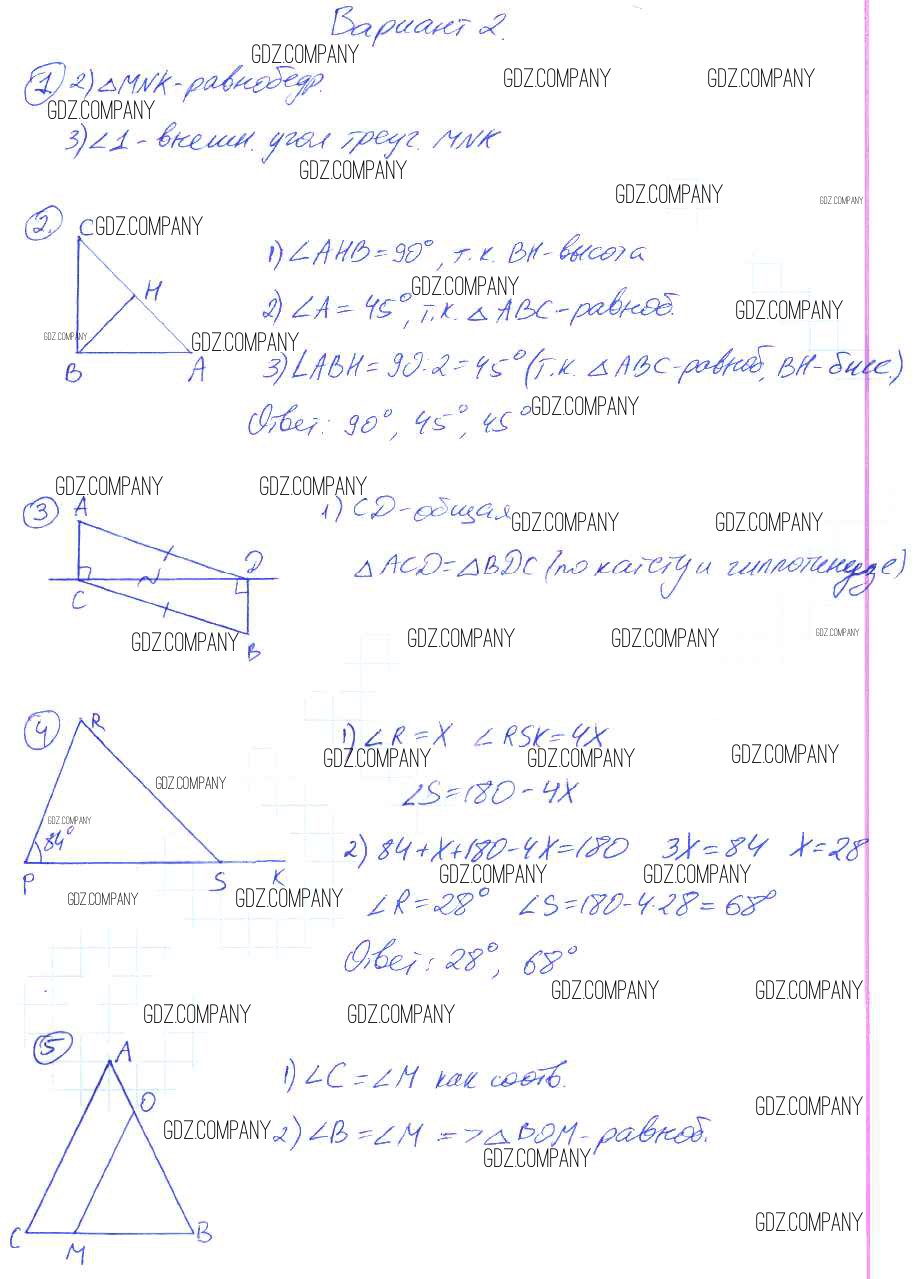 Вариант 2.
GDZ.COMPANY
1. 2) △MNK - равнобедр.
GDZ.COMPANY GDZ.COMPANY
GDZ.COMPANY
3) ∠1 - внешн. угол треуг. MNK
GDZ.COMPANY
GDZ.COMPANY GDZ.COMPANY
2. C GDZ.COMPANY
1) ∠AHB = 90°, т.к. BH - высота
H GDZ.COMPANY
2) ∠A = 45°, т.к. △ABC - равноб. GDZ.COMPANY
GDZ.COMPANY GDZ.COMPANY
B A
3) ∠ABH = 90:2 = 45° (т.к. △ABC - равноб, BH - бисс.)
Ответ: 90°, 45°, 45° GDZ.COMPANY
GDZ.COMPANY GDZ.COMPANY
3 A
1) CD - общая
GDZ.COMPANY GDZ.COMPANY
D
△ACD = △BDC (по катету и гиппотенузе)
C
GDZ.COMPANY GDZ.COMPANY GDZ.COMPANY GDZ.COMPANY
B
4 R
1) ∠R = X ∠RSK = 4X
GDZ.COMPANY GDZ.COMPANY GDZ.COMPANY
GDZ.COMPANY
∠S = 180 - 4X
GDZ.COMPANY
84°
2) 84 + X + 180 - 4X = 180 3X = 84 X = 28
P S K
GDZ.COMPANY GDZ.COMPANY
GDZ.COMPANY GDZ.COMPANY
∠R = 28° ∠S = 180 - 4·28 = 68°
Ответ: 28°, 68°
GDZ.COMPANY GDZ.COMPANY
GDZ.COMPANY GDZ.COMPANY
5 A
1) ∠C = ∠M как соотв.
O
GDZ.COMPANY
GDZ.COMPANY
2) ∠B = ∠M => △BOM - равноб.
GDZ.COMPANY
GDZ.COMPANY
C M B